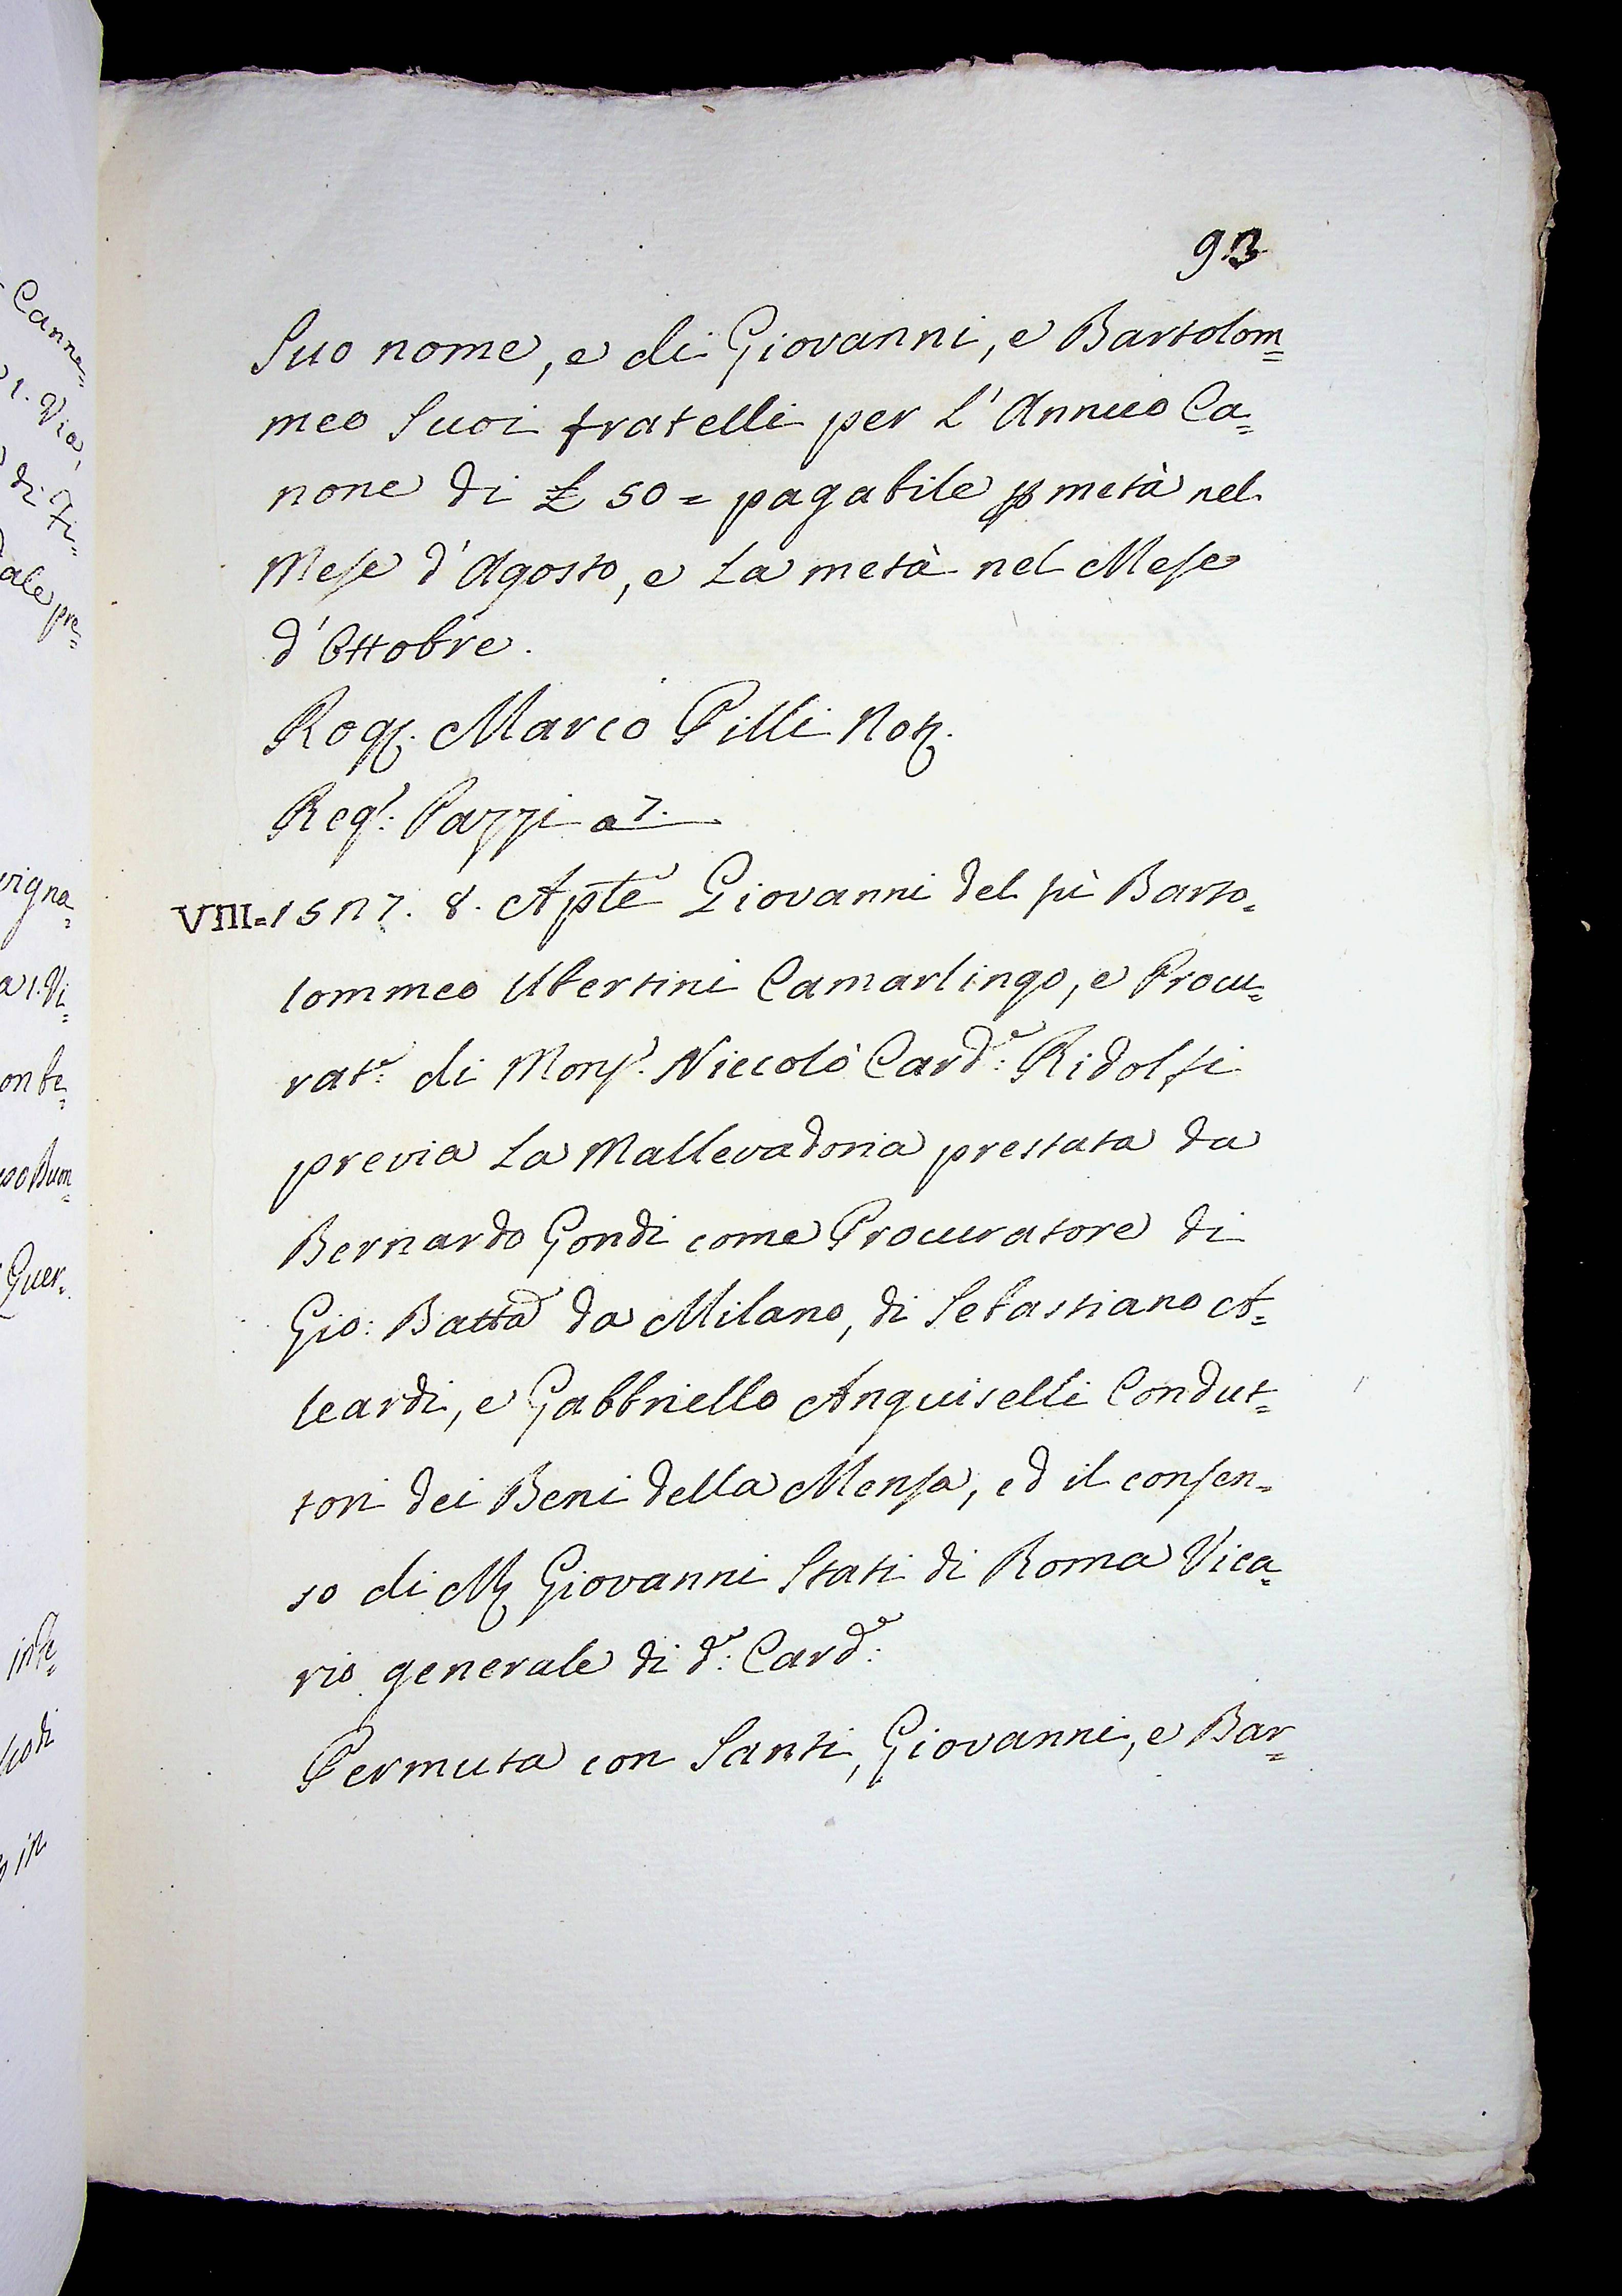 93
Suo nome, e di Giovanni, e Bartolom=
meo Suoi fratelli per l'Annuo Ca=
none di £ 50 = pagabile p metà nel
Mese d'Agosto, e la metà nel Mese
d'Ottobre.
Rog. Marco Pilli Not.
Reg.: Pazzi a 7.
VIII= 8. Apte Giovanni del fù Barto=
lommeo Ubertini Camarlingo, e Procu=
rat.e di Mons.r Niccolò Card.e: Ridolfi
previa la Mallevadoria prestata da
Bernardo Gondi come Procuratore di
Gio: Batta da Milano, di Sebastiano A=
leardi, e Gabbriello Anguiselli Condut=
tori dei Beni della Mensa, ed il consen=
so di M Giovanni Stati di Roma Vica=
rio generale di d.o: Card.e:
Permuta con Santi, Giovanni, e Bar=
Canne=
1. Via,
di Fi=
ale pre=
vigna=
a 1. Vi=
Guer=
in